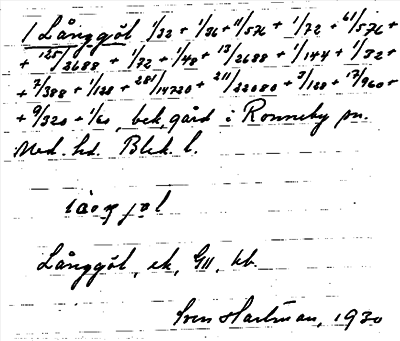 1 Långgöl 1/32 + 1/36 + 11/576 + 1/72 + 61/576 +
+ 125/2688 + 1/72 + 1/48 + 13/2688 + 1/144 + 1/32 +
+ 7/388 + 1/128 + 281/14720 + 211/22080 + 3/128 + 17/960 +
+ 9/320 + 1/60, bek. gård i Ronneby sn.
Med. hd. Blek. l.
Långgöl, ek, GII, kb.
Sven Hartman, 1930